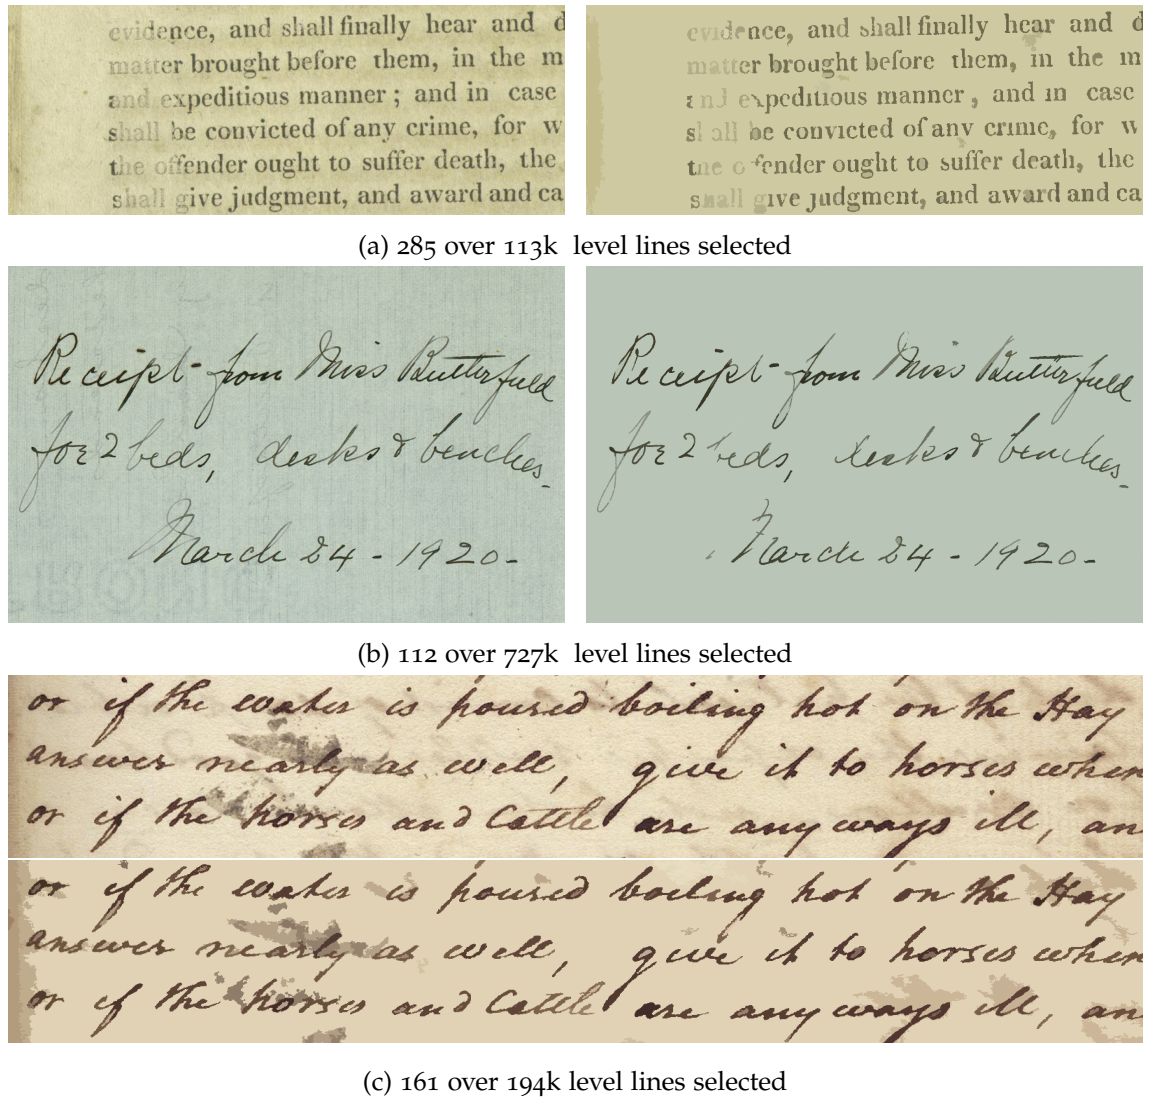 evidence, and shall finally hear and d
matter brought before them, in the m
and expeditious manner; and in case
shall be convicted of any crime, for w
the offender ought to suffer death, the
shall give judgment, and award and ca
evidence, and shall finally hear and d
matter brought before them, in the m
and expeditious manner, and in case
shall be convicted of any crime, for w
the offender ought to suffer death, the
shall give judgment, and award and ca
(a) 285 over 113k level lines selected
Receipt from Miss Butterfield
for 2 beds, desks & benches.
March 24 - 1920-
Receipt from Miss Butterfield
for 2 beds, desks & benches.
March 24 - 1920-
(b) 112 over 727k level lines selected
or if the water is poured boiling hot on the Hay
answer nearly as well, give it to horses when
or if the horses and Cattle are any ways ill, an
or if the water is poured boiling hot on the Hay
answer nearly as well, give it to horses when
or if the horses and Cattle are any ways ill, an
(c) 161 over 194k level lines selected